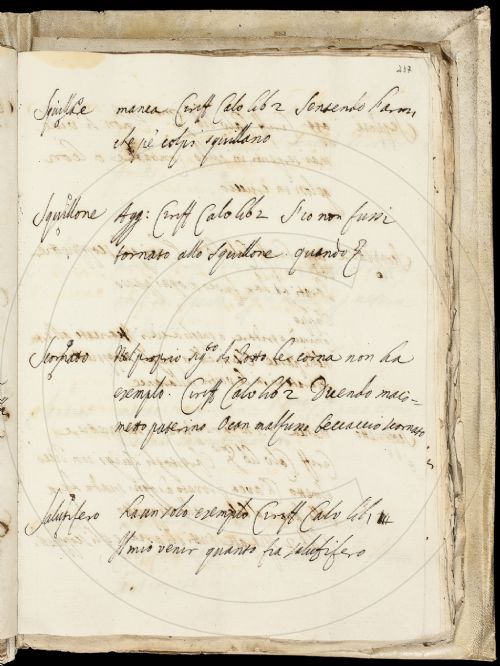 237
Squillare manca Ciriff Calv lib 2 Sentendo l'armi
che pe colpi squillano
Squillone Agg: Ciriff Calv lib 2 S'io non fussi
tornato allo squillone quando
Scornato Nel proprio sig.to di rotto le corna non ha
esempio. Ciriff Calv lib 2 Dicendo maco=
metto paterino O can malfusso beccaccio scornato
Salutifero ha un solo esempio Ciriff Calv lib
Il mio venir quanto fia salutifero